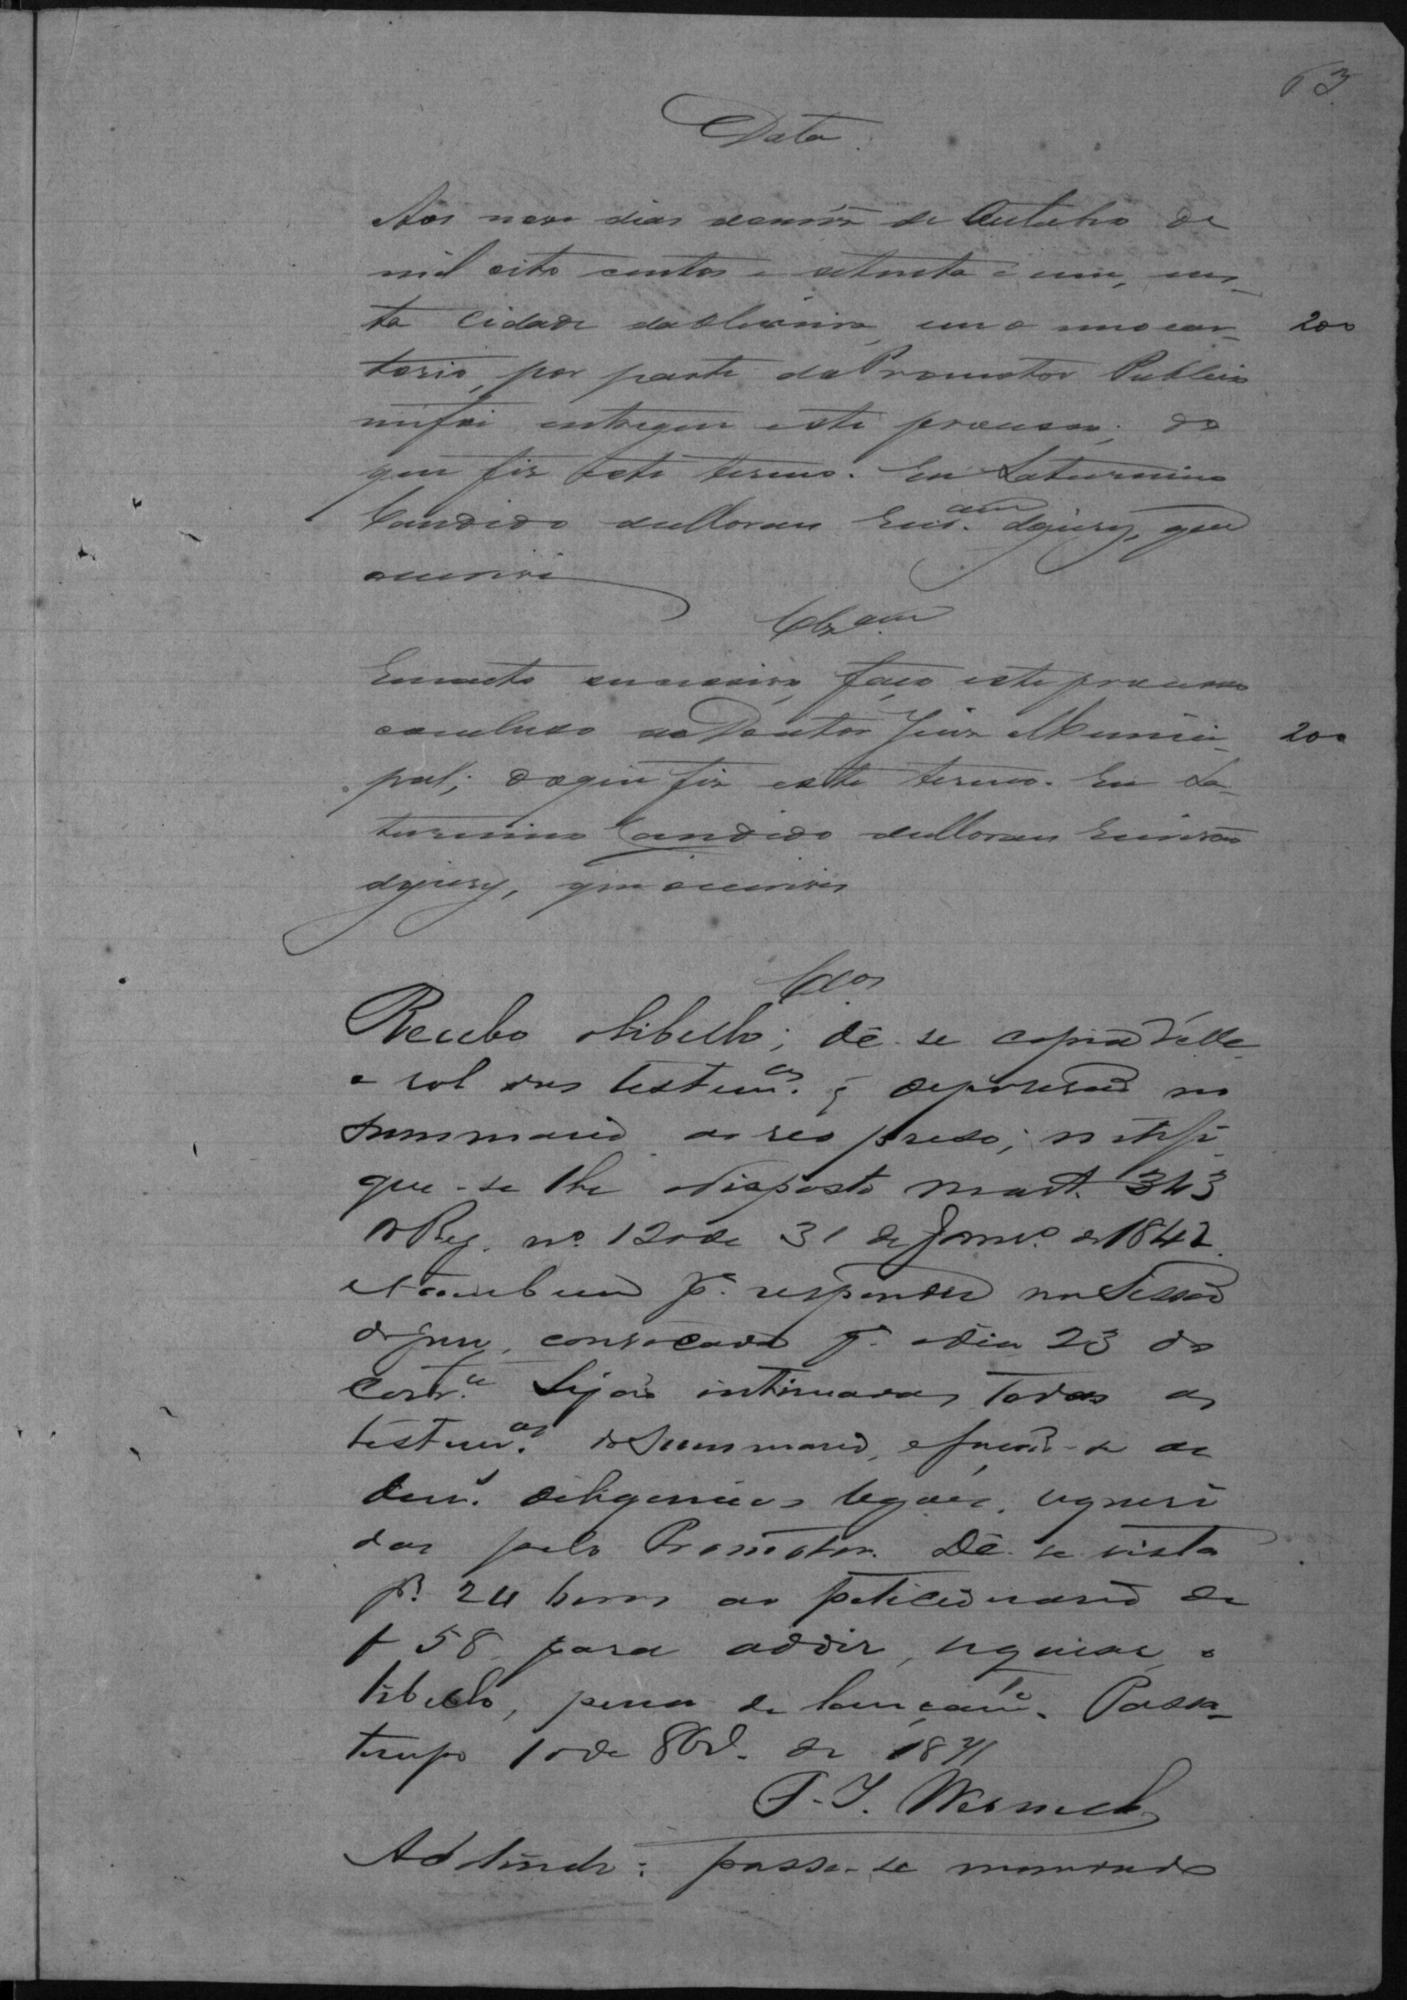 63
Data
Aos nove dias do mês de Outubro de
mil oito centos e setenta e um, nes-
ta Cidade da Limeira, em o meu car-
200
torio, por parte do Promotor Publico
me foi entregue este processo; do
que fiz este termo. Eu Saturnino
Candido de Moraes Escr.am do jury, que
escrevi
Clz.am
Em acto successivo faço este processo
concluso ao Doutor Juiz Munici-
200
pal; do que fiz este termo. Eu Sa-
turnino Candido de Moraes Escrivão
do jury, que escrevi
Clos
Recebo o libello; dê-se copia d'elle
e rol das testem.as q̃ depuserão no
summario ao reo preso; notifi-
que-se lhe o disposto no art. 343
do Reg. nº 120 de 31 de Janrº de 1842
e tambem pª responder na Sessão
do jury, convocada pª o dia 23 do
corr.e Sejão intimadas todas as
testem.as do Summario, e fação-se as
dem.s deligencias legaes, requeri
das pelo Promotor. Dê-se vista
pr 24 horas ao peticionario de
f 58 para addir, se quiser, o
libello, pena de lançam.to. Passa-
tempo 10 de 8br.o de 1871
F. J. Werneck
Additando: passe-se mandado